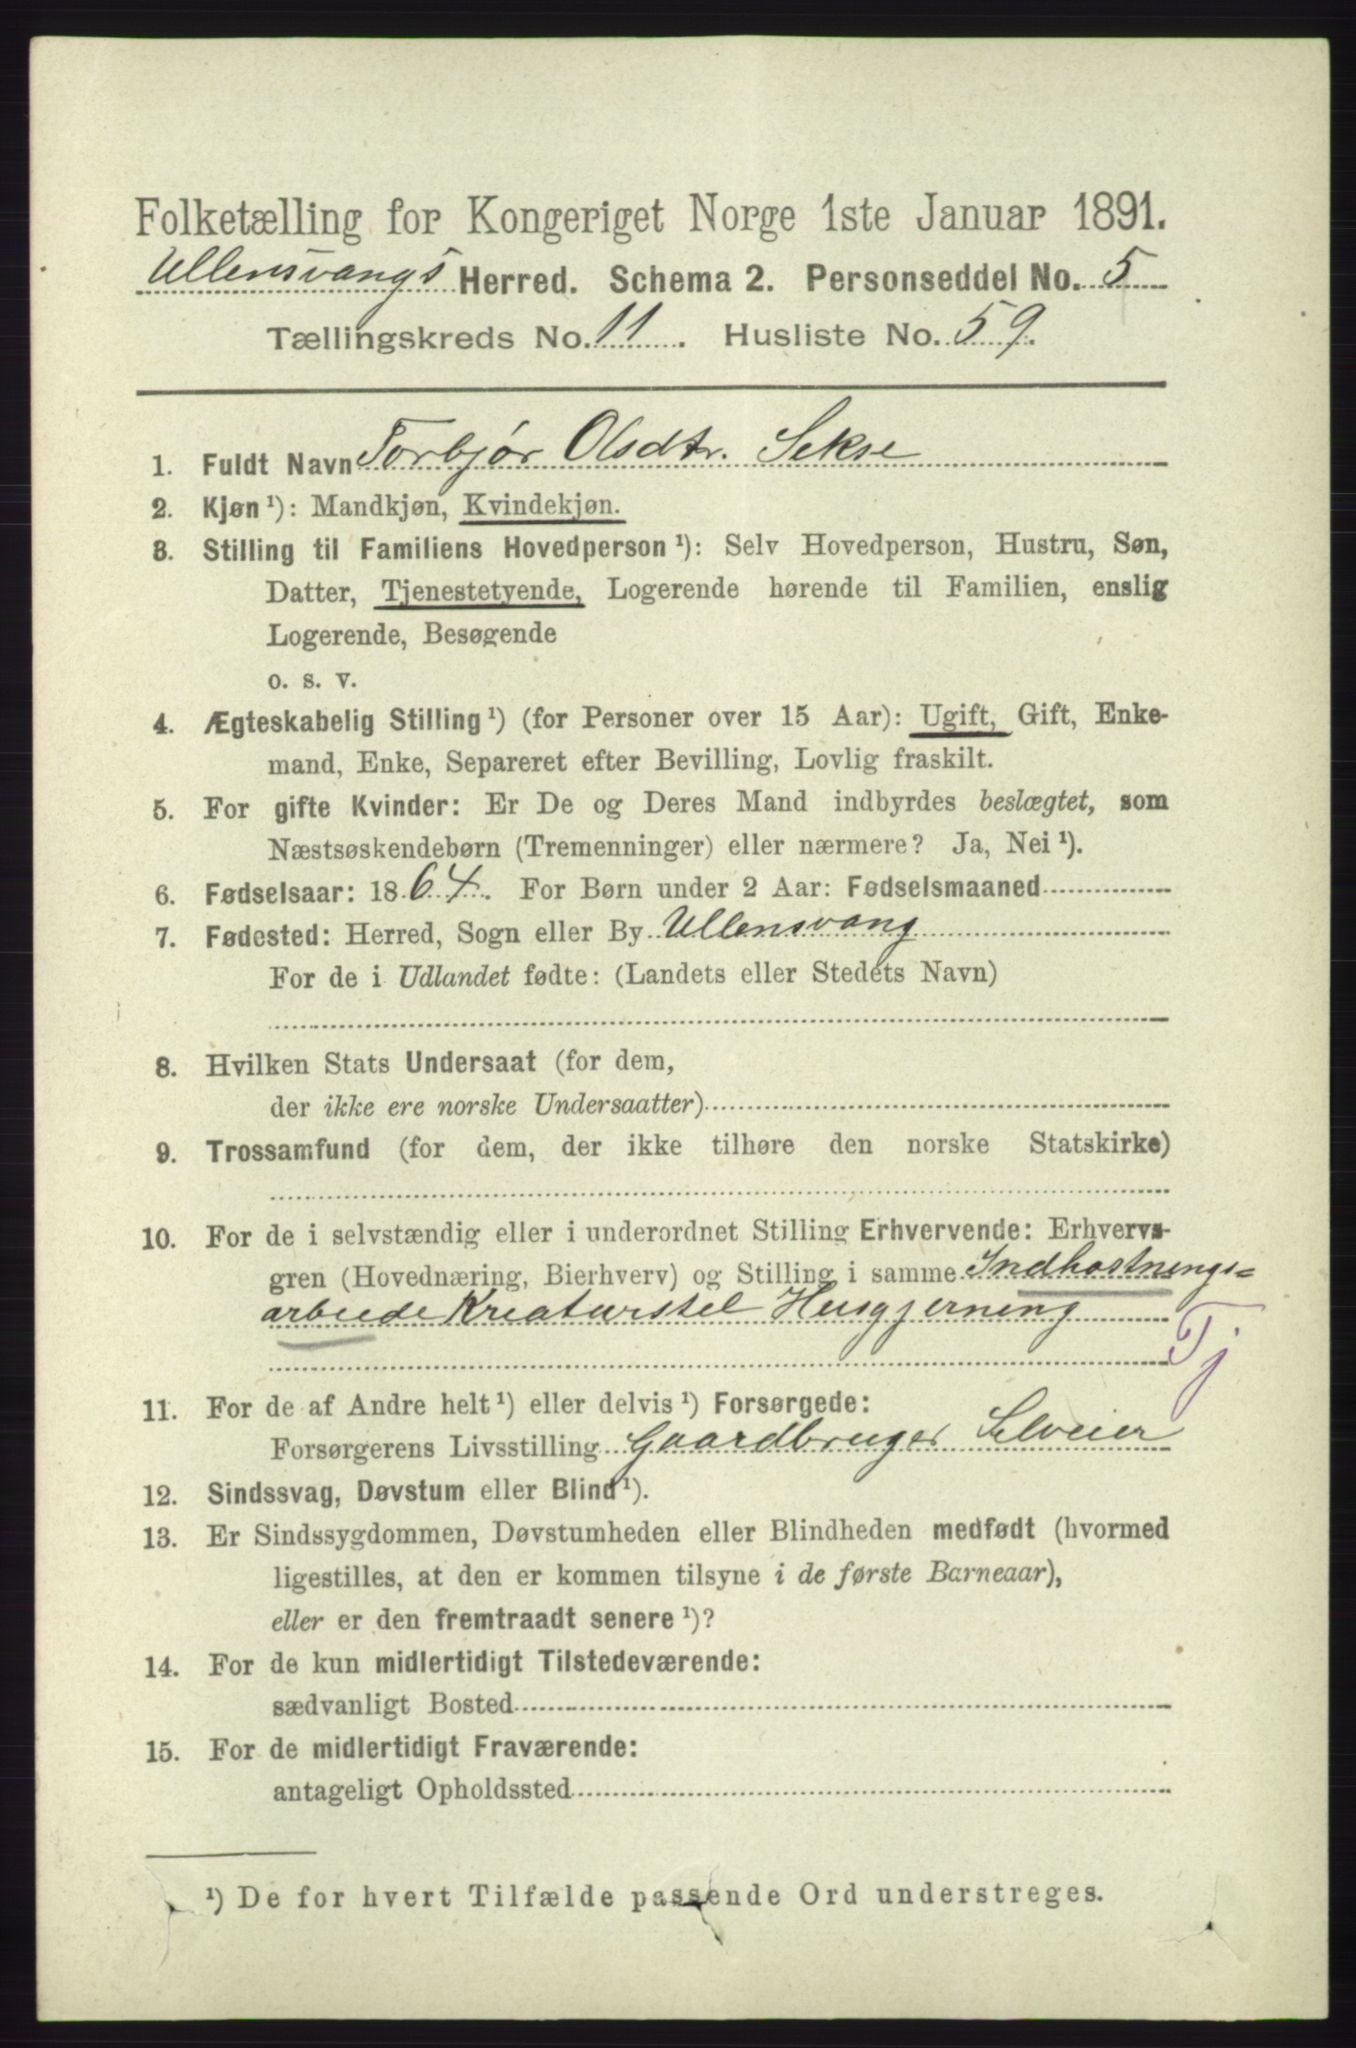 Folketælling for Kongeriget Norge 1ste Januar 1891.
Ullensvangs Herred. Schema 2. Personseddel No. 5
Tællingskreds No. 11. Husliste No. 59.
1. Fuldt Navn Torbjør Olsdtr. Sekse
2. Kjøn¹): Mandkjøn, Kvindekjøn.
3. Stilling til Familiens Hovedperson¹): Selv Hovedperson, Hustru, Søn,
Datter, Tjenestetyende, Logerende hørende til Familien, enslig
Logerende, Besøgende
o. s. v.
4. Ægteskabelig Stilling¹) (for Personer over 15 Aar): Ugift, Gift, Enke-
mand, Enke, Separeret efter Bevilling, Lovlig fraskilt.
5. For gifte Kvinder: Er De og Deres Mand indbyrdes beslægtet, som
Næstsøskendebørn (Tremenninger) eller nærmere? Ja, Nei¹).
6. Fødselsaar: 1864. For Børn under 2 Aar: Fødselsmaaned
7. Fødested: Herred, Sogn eller By Ullensvang
For de i Udlandet fødte: (Landets eller Stedets Navn)
8. Hvilken Stats Undersaat (for dem,
der ikke ere norske Undersaatter)
9. Trossamfund (for dem, der ikke tilhøre den norske Statskirke)
10. For de i selvstændig eller i underordnet Stilling Erhvervende: Erhvervs-
gren (Hovednæring, Bierhverv) og Stilling i samme Indhøstnings=
arbeide Kreaturstel Husgjerning
Tj
11. For de af Andre helt¹) eller delvis¹) Forsørgede:
Forsørgerens Livsstilling Gaardbruger Selveier
12. Sindssvag, Døvstum eller Blind¹).
13. Er Sindssygdommen, Døvstumheden eller Blindheden medfødt (hvormed
ligestilles, at den er kommen tilsyne i de første Barneaar),
eller er den fremtraadt senere¹)?
14. For de kun midlertidigt Tilstedeværende:
sædvanligt Bosted
15. For de midlertidigt Fraværende:
antageligt Opholdssted
¹) De for hvert Tilfælde passende Ord understreges.